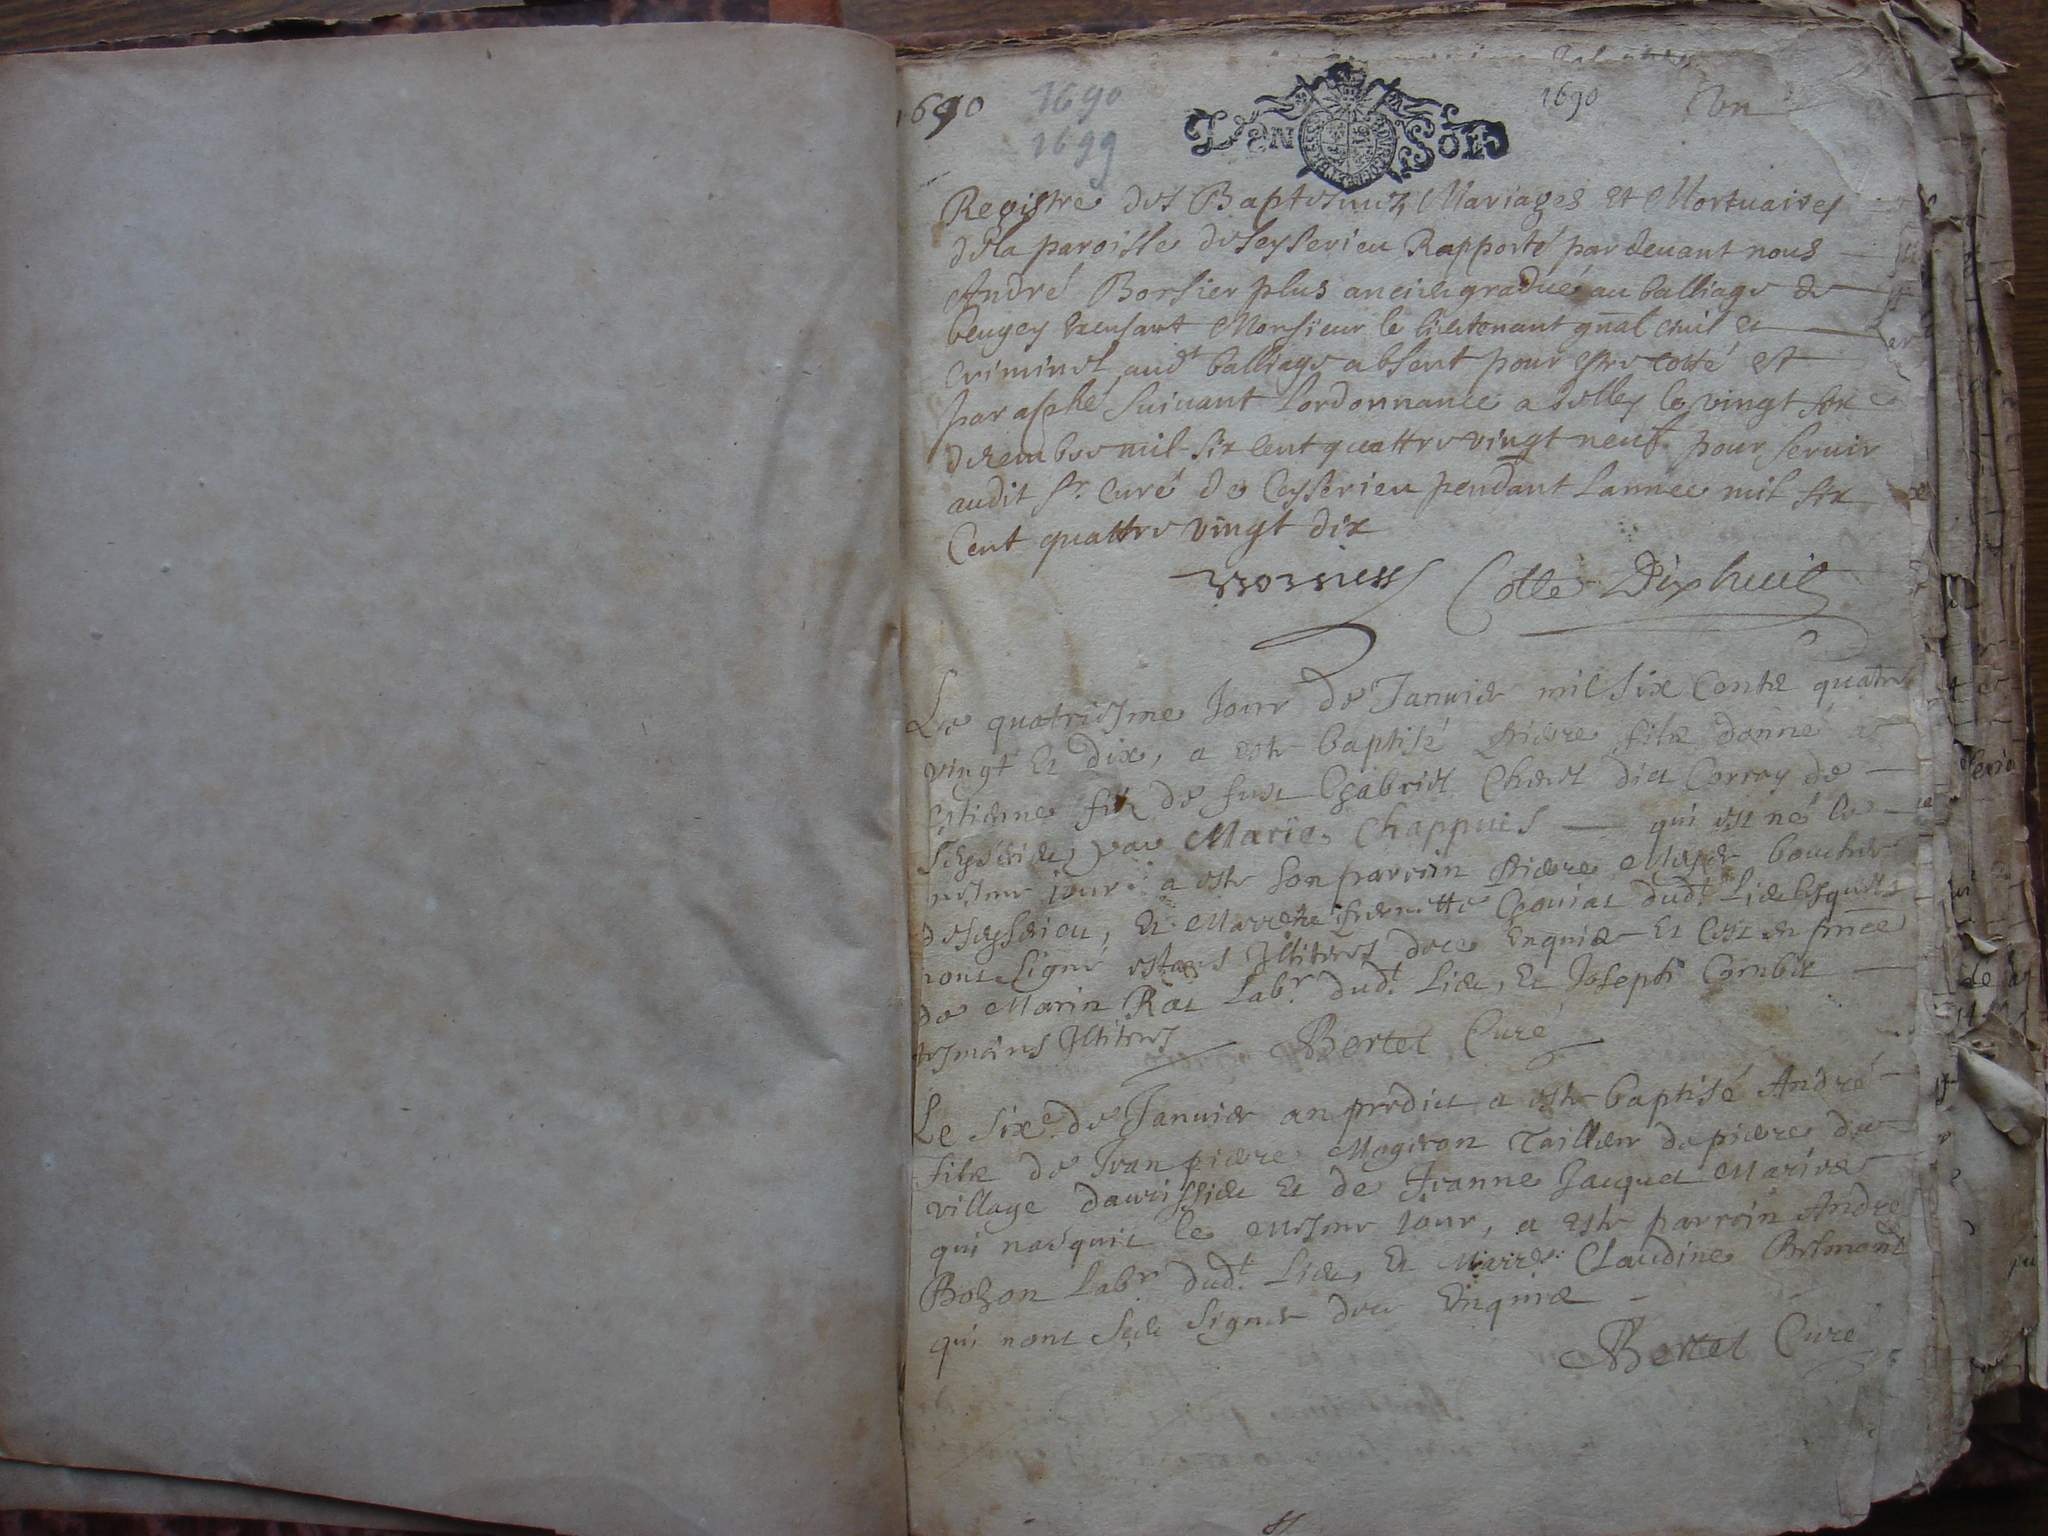 1690 1690 1690 Un
1699
Registre des Baptesmes, Mariages et Mortuaires
de la paroisse de seysserieu Rapporté par devant nous
André Borsier plus ancien gradué au balliage de
beugey exersant Monsieur le lieutenant gñal civil et
criminel aud<sup>t</sup> balliage absent pour estre cotté et
paraphé suivant lordonnance a belley le vingt six
decembre mil six cent quattre vingt neuf pour servir
audit sr. curé de Ceysserieu pendant lannee mil six
Cent quattre vingt dix
Cotte Dixhuit
Le quatriesme Jour de Januier mil six Centz quatre
vingt et dix, a esté baptisé pierre filz donné a
Estienne filz de feu Gabriel dict Corray de
par Marie Chappuis qui est né le
mesme jour: a esté son parroin pierre
de seysserieu, et Marreine dud<sup>t</sup> Lieu lesquels
nont signé estans Illiteres de ce Enquis Et Cest en pñce
de Marin Rat Lab<sup>r</sup>. dud<sup>t</sup> Lieu, et Joseph Cornbet
tesmoins Illiteres Bertet Curé
Le sixe. de Januier an predict a esté baptisé André
filz de Jean pierre Mogiron Tailleur de pierre du
village et de Jeanne Jacquet Mariés
qui nasquit le mesme jour, a esté parroin André
Bozon Lab<sup>r</sup>. dud<sup>t</sup> Lieu, et Marre: Claudine Belmont
qui nont sceu signer de ce Enquis
Bertet Curé